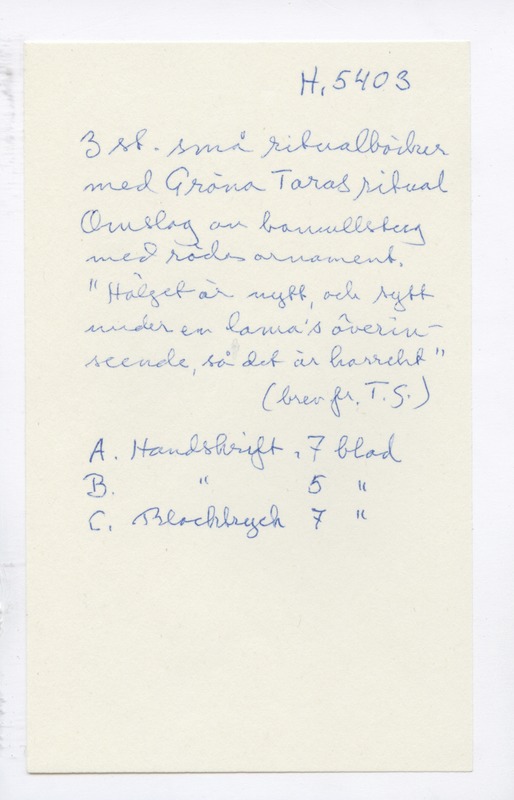 H. 5403
3 st. små ritualböcker
med Gröna Taras ritual
Omslag av bomullstyg
med röda ornament.
"Höljet är nytt, och sytt
under en lama's överin-
seende, så det är korrekt"
(brev fr. T.S.)
A. Handskrift. 7 blad
B. " 5 "
C. Blocktryck 7 "